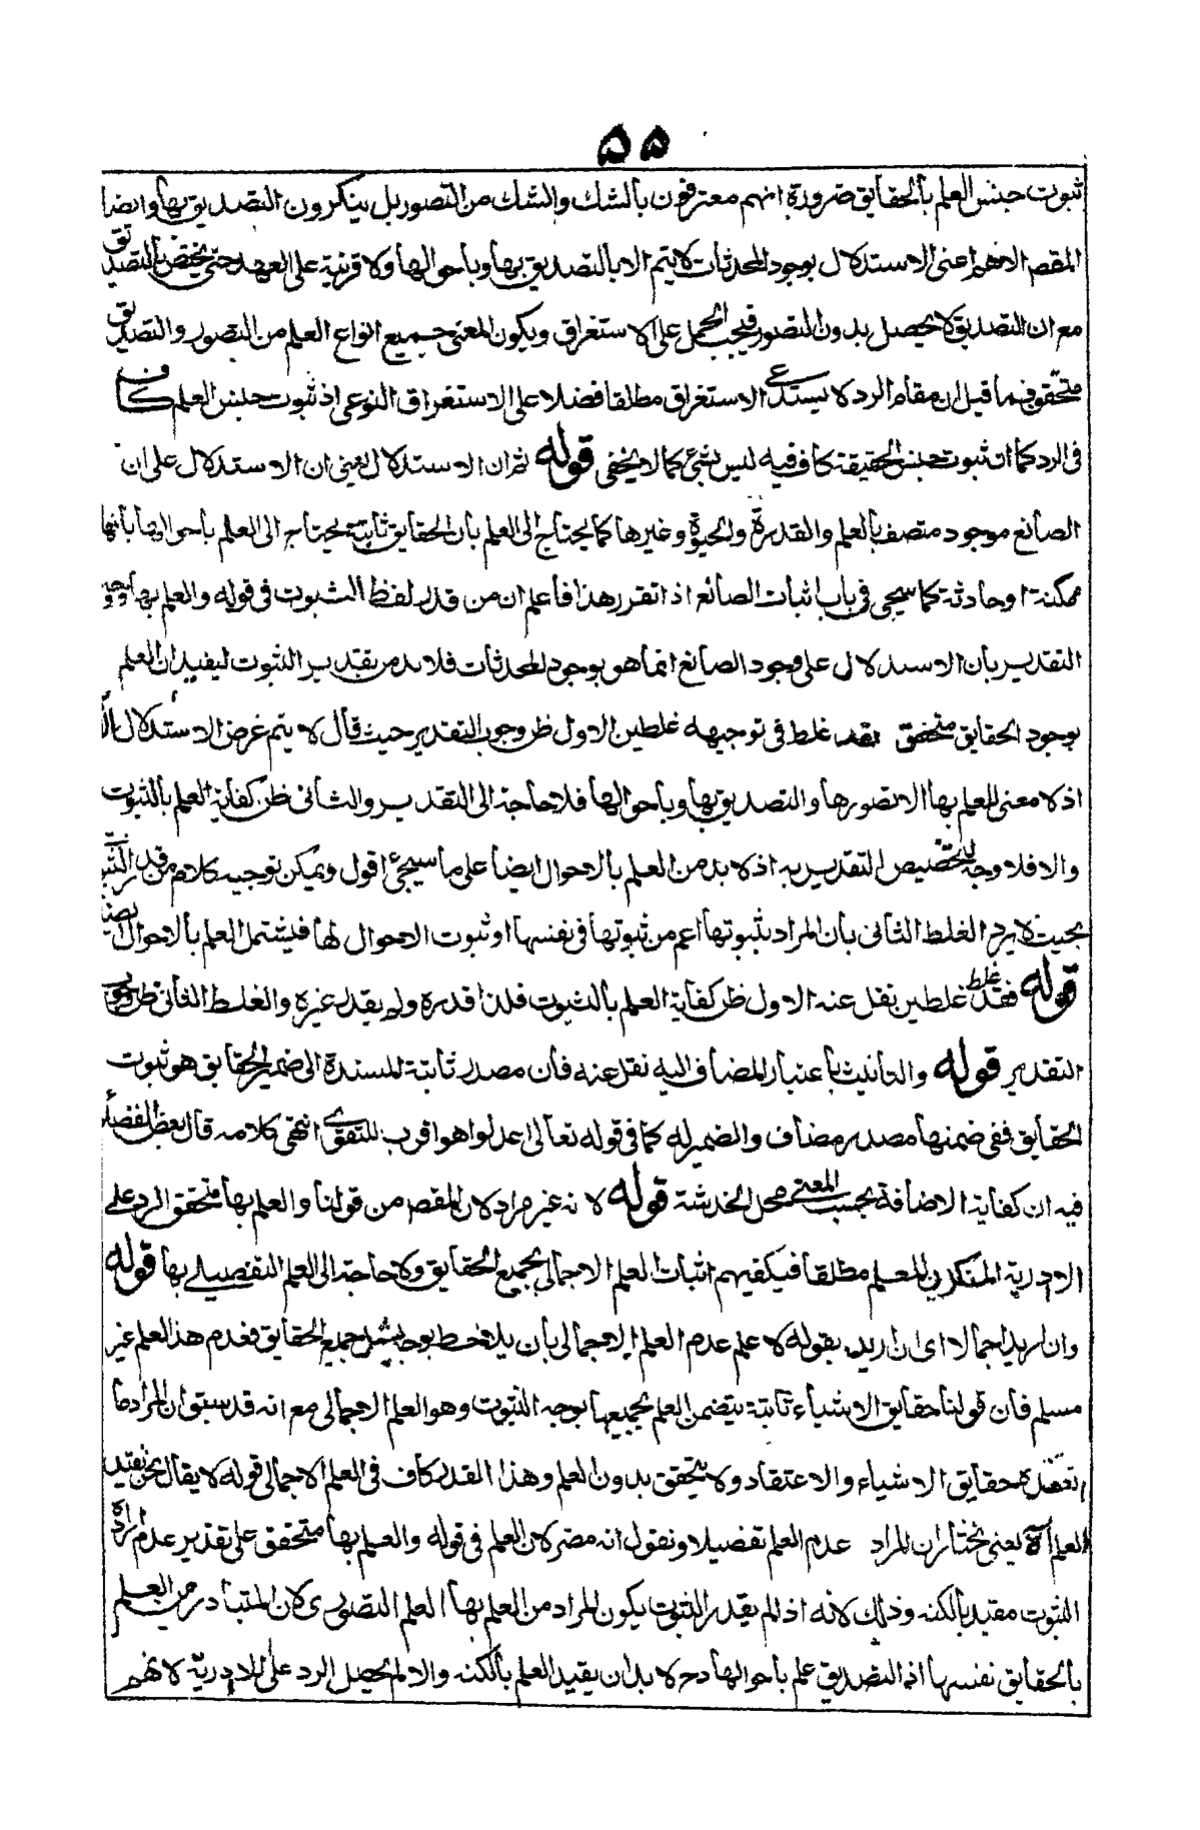 ۵۵
ثبوت جنس العلم بالحقايق ضرورة انهم معترفون بالشك والشك من التصور بل ينكرون التصديق بها وايضا
المقصد الاهم اعنى الاستدلال بوجود المحدثات لا يتم الا بالتصديق بها وباحوالها ولا قرينة على العهد حتى يختص بالتصديق
مع ان التصديق لا يحصل بدون التصور فيجب الحمل على الاستغراق ويكون المعنى جميع انواع العلم من التصور والتصديق
متحقق فيما قيل ان مقام الرد لا يستدعى الاستغراق مطلقا فضلا على الاستغراق النوعى اذ ثبوت جنس العلم كاف
فى الرد كما ان ثبوت جنس الحقيقة كاف فيه ليس بشئ كما لا يخفى قوله ثم ان الاستدلال يعنى ان الاستدلال على ان
الصانع موجود متصف بالعلم والقدرة والحيوة وغيرها كما يحتاج الى العلم بان الحقايق ثابتة يحتاج الى العلم باحوالها بانها
ممكنة او حادثة كما سيجى فى باب اثبات الصانع اذا تقرر هذا فاعلم ان من قدر لفظ الثبوت فى قوله والعلم بها ووجه
التقدير بان الاستدلال على وجود الصانع انما هو بوجود المحدثات فلا بد من تقدير الثبوت ليفيد ان العلم
بوجود الحقايق متحقق فقد غلط فى توجيهه غلطين الاول ظن وجوب التقدير حيث قال لا يتم غرض الاستدلال الا
اذ لا معنى للعلم بها الا تصورها والتصديق بها وباحوالها فلا حاجة الى التقدير والثانى ظن كفاية العلم بالثبوت
والا فلا وجه لتخصيص التقدير به اذ لا بد من العلم بالاحوال ايضا على ما سيجئ اقول ويمكن توجيه كلام من قدر الثبوت
بحيث لا يرد الغلط الثانى بان المراد بثبوتها اعم من ثبوتها فى نفسها او ثبوت الاحوال لها فيشتمل العلم بالاحوال ايضا
قوله فقد غلط غلطين نقل عنه الاول ظن كفاية العلم بالثبوت فلذا قدره ولم يقدر غيره والغلط الثانى ظن وجوب
التقدير قوله والتانيث باعتبار المضاف اليه نقل عنه فان مصدر ثابتة المسندة الى ضمير الحقايق هو ثبوت
الحقايق ففى ضمنها مصدر مضاف والضمير له كما فى قوله تعالى اعدلوا هو اقرب للتقوى انتهى كلامه قال بعض الفضلاء
فيه ان كفاية الاضافة بحسب المعنى محل الخدشة قوله لانه غير مراد لان المقصد من قولنا والعلم بها متحقق الرد على
الادرية المنكرين للعلم مطلقا فيكفيهم اثبات العلم الاجمالى بجميع الحقايق ولا حاجة الى العلم التفصيلى بها قوله
وان اريد اجمالا اى ان اريد بقوله لا علم عدم العلم الاجمالى بان يلاحظ بوجه يشمل جميع الحقايق فعدم هذا العلم غير
مسلم فان قولنا حقايق الاشياء ثابتة يتضمن العلم بجميعها بوجه الثبوت وهو العلم الاجمالى مع انه قد سبق ان المراد ما
نعتقده حقايق الاشياء والاعتقاد ولا يتحقق بدون العلم وهذا القدر كاف فى العلم الاجمالى قوله لا يقال نحن نقيد
العلم اه يعنى نختار ان المراد عدم العلم تفصيلا ونقول انه مضر لان العلم فى قوله والعلم بها متحقق على تقدير عدم ارادة
الثبوت مقيد بالكنه وذلك لانه اذ لم يقدر الثبوت يكون المراد من العلم بها العلم التصورى لان المتبادر من العلم
بالحقايق نفسها اذ التصديق علم باحوالها وح لا بد ان يقيد العلم بالكنه والا لم يحصل الرد على اللادرية لانهم